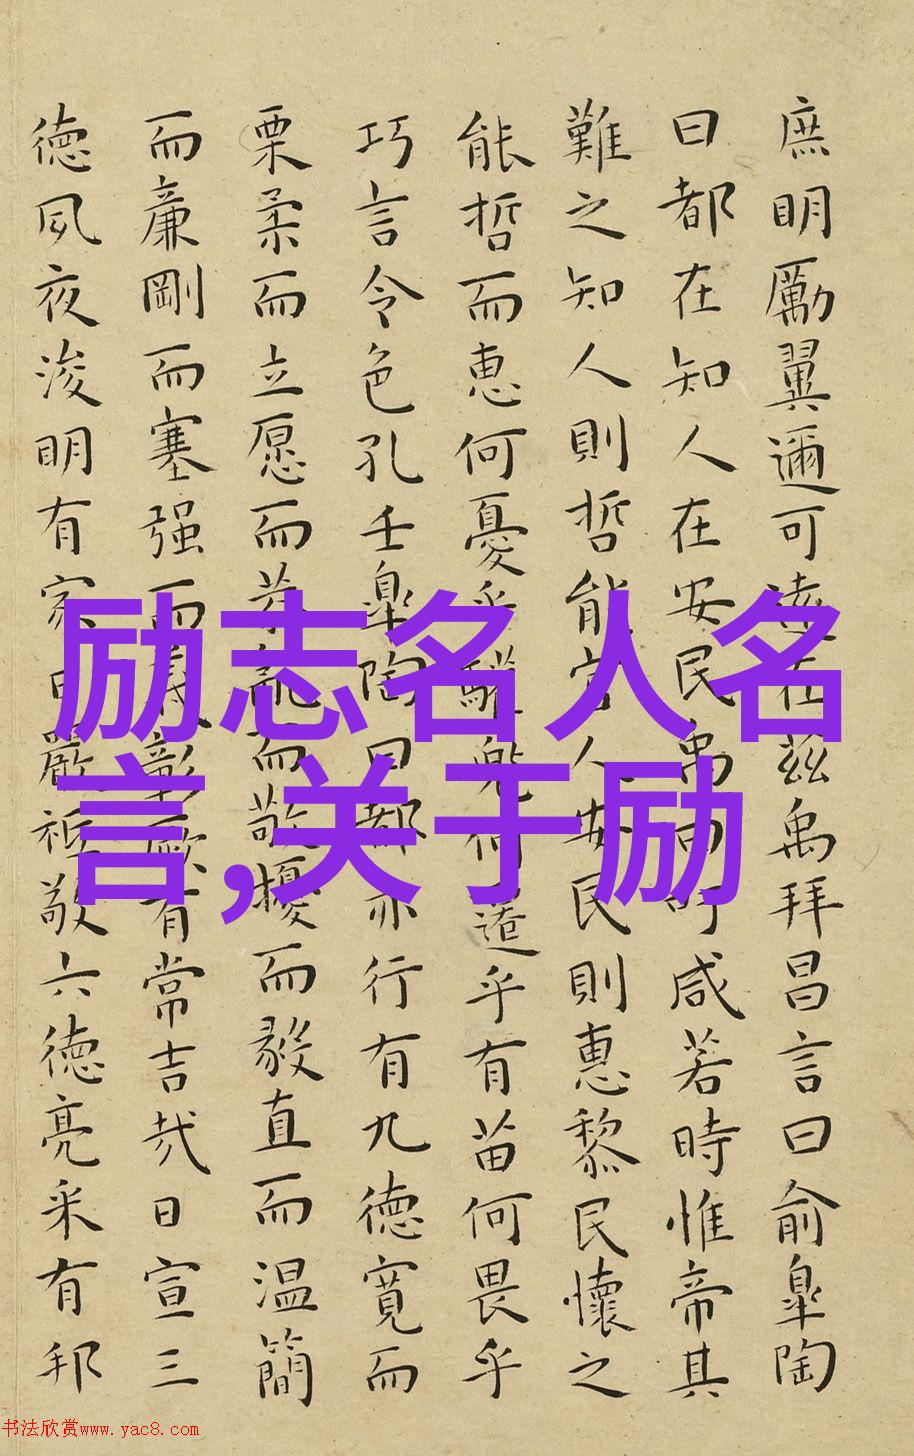 庶明厲翼邇可遠在茲禹拜昌言曰俞皐陶
曰都在知人在安民禹曰吁咸若時惟帝其
難之知人則哲能官人安民則惠黎民懷之
能哲而惠何憂乎驩兜何遷乎有苗何畏乎
巧言令色孔壬皐陶曰都亦行有九德寬而
栗柔而立愿而恭亂而敬擾而毅直而温簡
而廉剛而塞强而義彰厥有常吉哉日宣三
德夙夜浚明有家日嚴祗敬六德亮采有邦
励志名人名
言,关于励
书法欣赏www.yac8.com